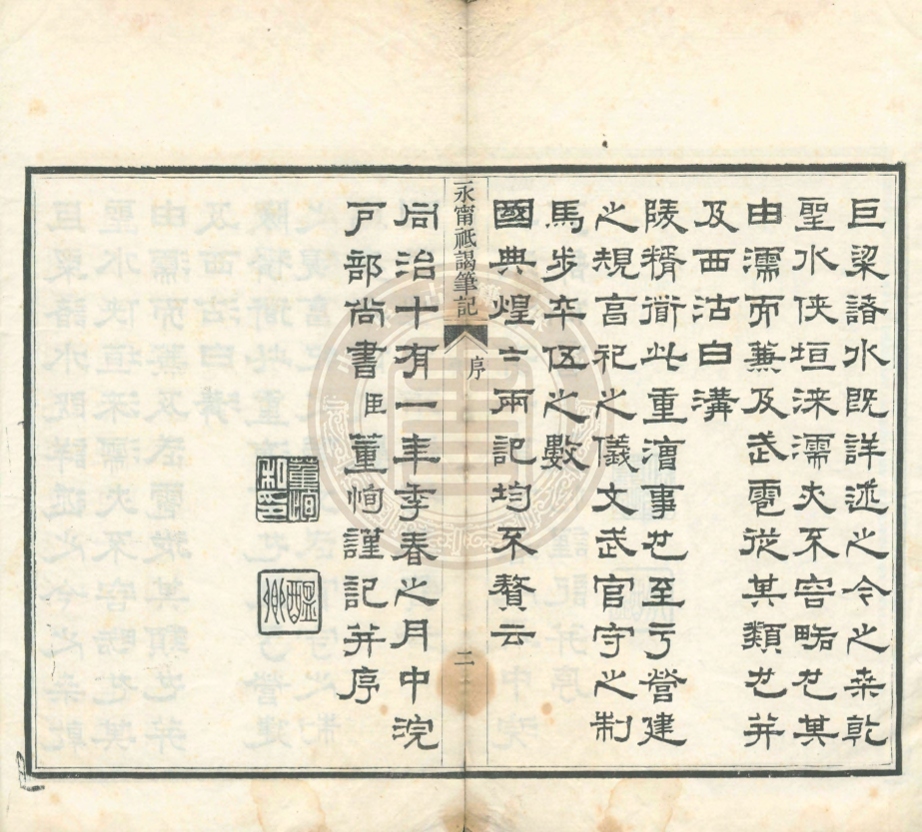 巨梁諸水既詳述之今之桒乾
聖水俠垣淶濡亦不容略也其
由濡而兼及武雹從其類也并
及西沽白溝
陵糈衜此重漕事也至亐營建
之規亯祀之儀文武官守之制
馬步卒伍之數
國典煌〻兩記均不贅云
永甯祗謁筆記 序 二
同治十有一年季春之月中浣
戶部尚書臣董恂謹記并序
董恂私印
醖卿